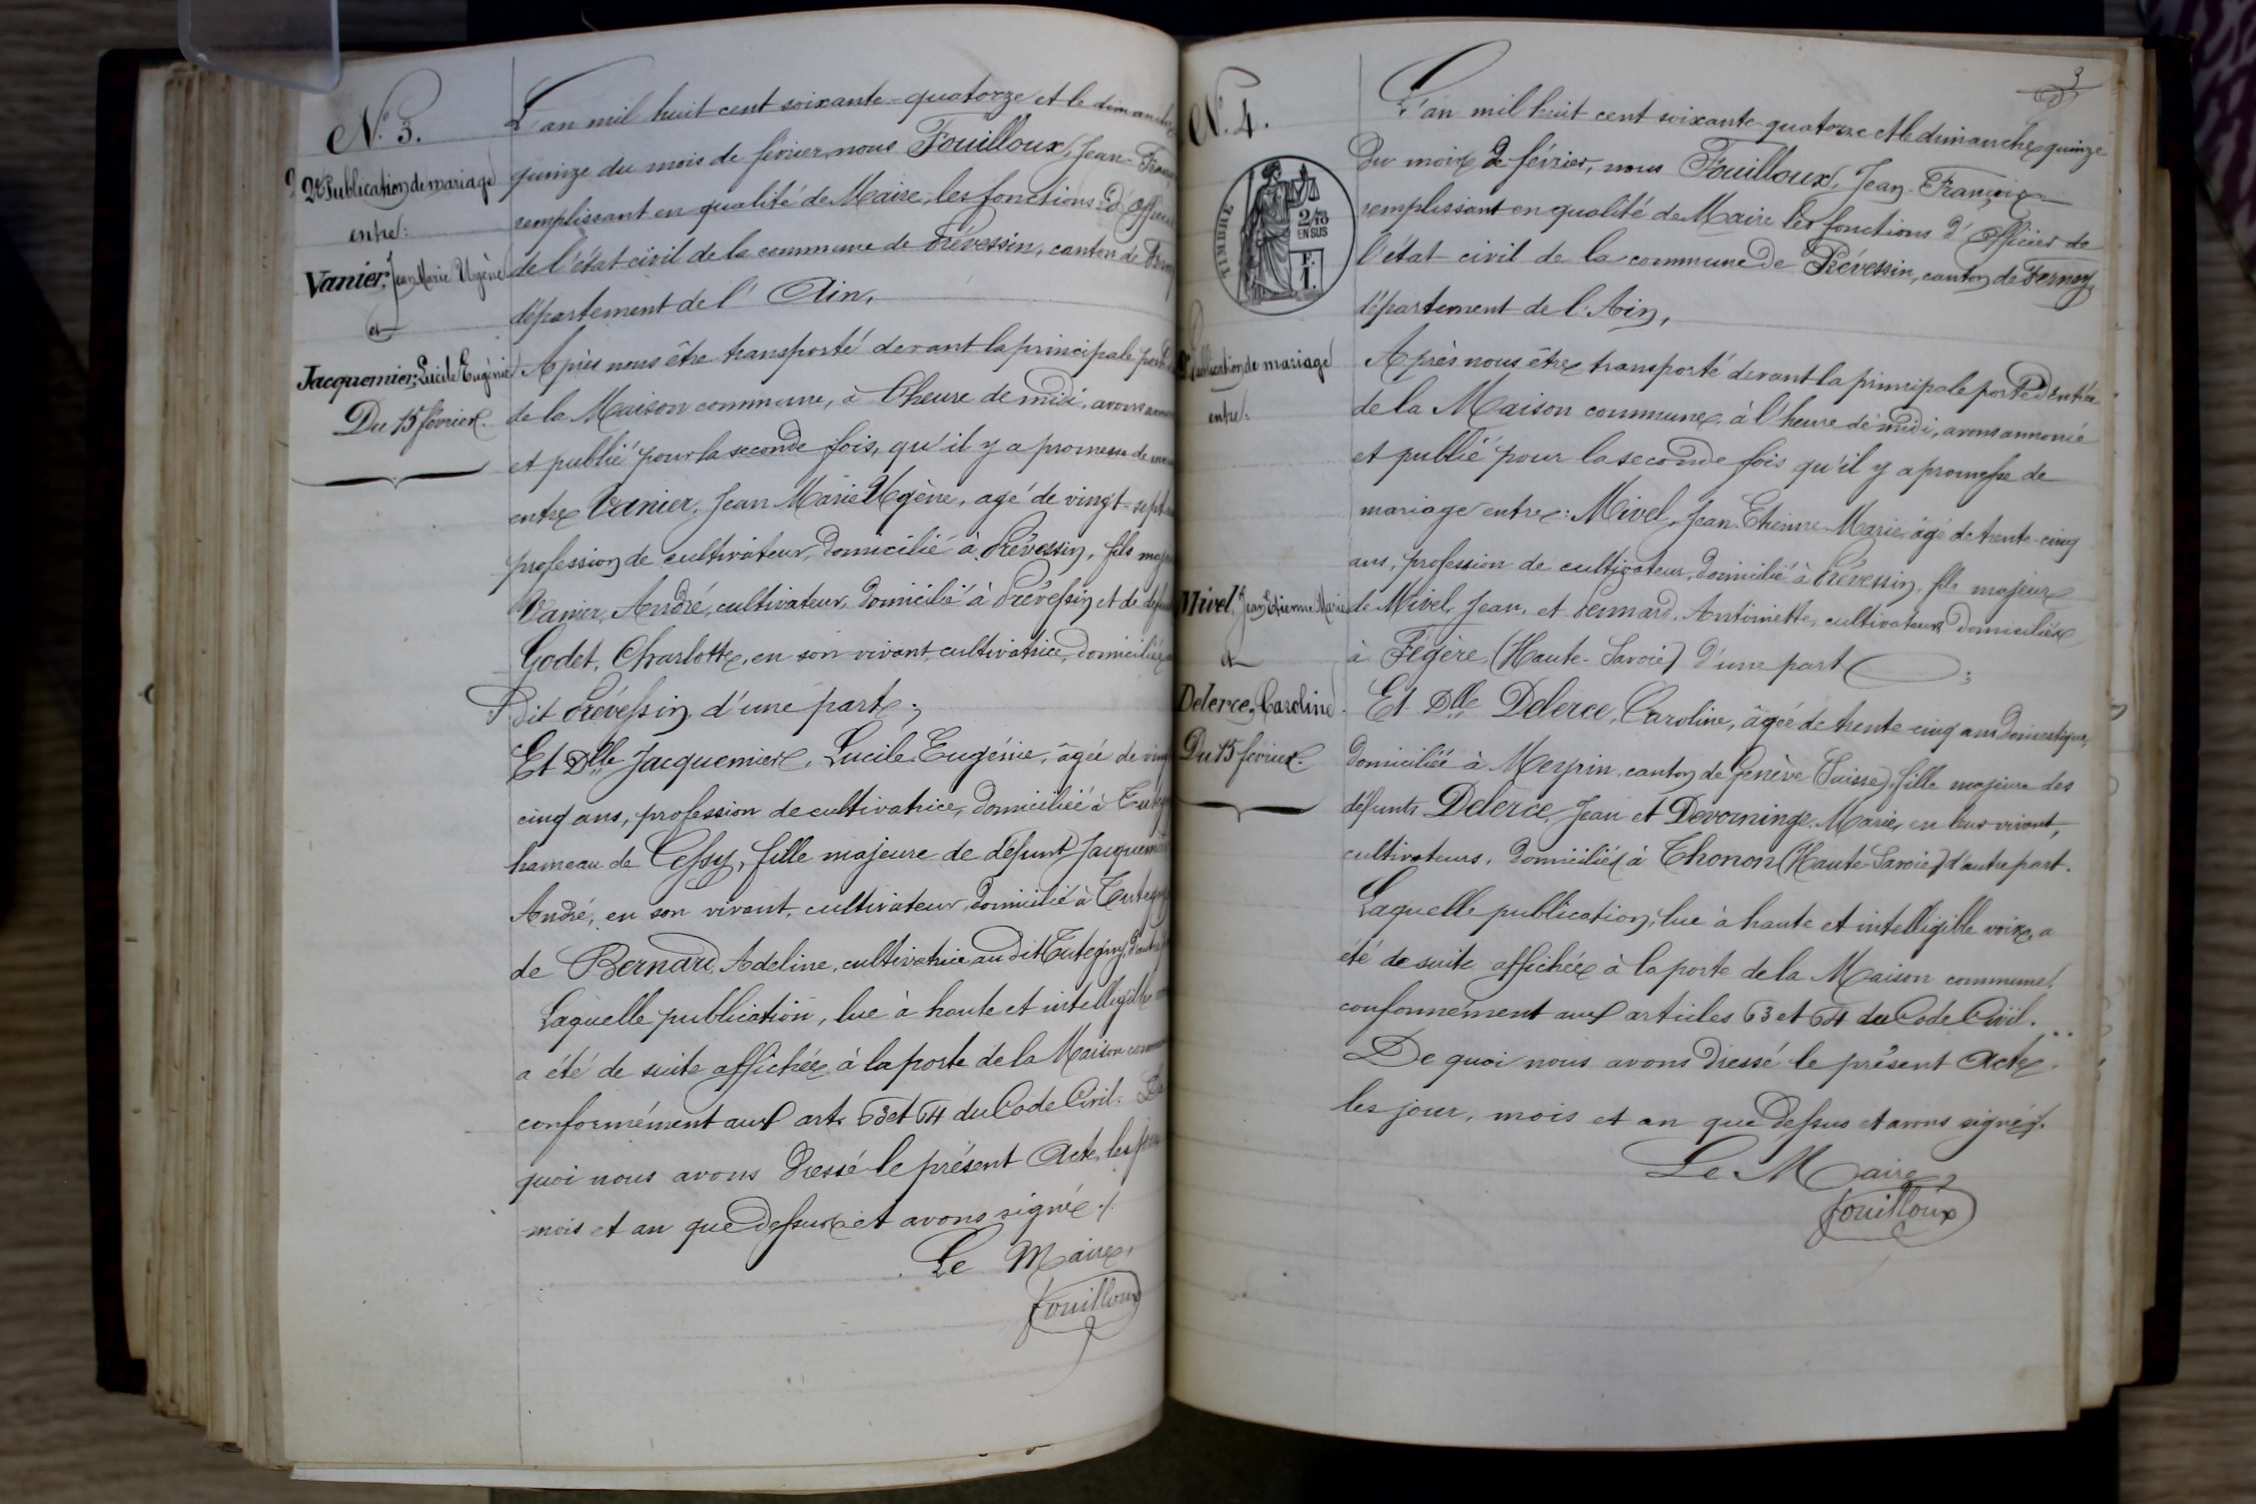 N.º 3.
2e Publication de mariage
entre:
Vanier, Jean Marie Ugène
et
Jacquemier, Lucile Eugénie
Du 15 février.
L'an mil huit cent soixante-quatorze et le dimanche
quinze du mois de février, nous Fouilloux, Jean-
remplissant en qualité de Maire, les fonctions d'
de l'état civil de la commune de Prévessin, canton de
département de l'Ain,
Après nous être transporté devant la principale
de la Maison commune, à l'heure de midi, avons
et publié pour la seconde fois, qu'il y a promesse de
entre Vanier, Jean Marie Ugène, agé de vingt-sept
profession de cultivateur, domicilié à Prévessin, fils
Vanier, André, cultivateur, domicilié à Prévessin et de
Godet, Charlotte, en son vivant, cultivatrice, domiciliée
dit Prévessin d'une part;
Et Dlle Jacquemier, Lucile Eugénie, âgée de
cinq ans, profession de cultivatrice, domiciliée à
hameau de Cessy, fille majeure de défunt
André, en son vivant, cultivateur, domicilié à
de Bernard, Adeline, cultivatrice au dit Tutegny,
Laquelle publication, lue à haute et intelligible
a été de suite affichée à la porte de la Maison
conformément aux art. 63 et 64 du Code Civil. De
quoi nous avons dressé le présent Acte, les
mois et an que dessus et avons signé ./.
Le Maire,
Fouilloux
3
N.º 4.
TIMBRE
2/10
EN SUS
F.
1.
Publication de mariage
entre:
Mivel, Jean Etienne Marie
et
Delerce, Caroline
Du 15 février.
L'an mil huit cent soixante-quatorze et le dimanche quinze
du mois de février, nous Fouilloux, Jean-François
remplissant en qualité de Maire les fonctions d'Officier de
l'état-civil de la commune de Prévessin, canton de Ferney,
département de l'Ain,
Après nous être transporté devant la principale porte d'entrée
de la Maison commune, à l'heure de midi, avons annoncé
et publié pour la seconde fois qu'il y a promesse de
mariage entre: Mivel, Jean-Etienne-Marie âgé de trente-cinq
ans, profession de cultivateur, domicilié à Prévessin, fils majeur
de Mivel, Jean, et Antoinette, cultivateurs domiciliés
à Fégère, (Haute-Savoie) d'une part;
Et Dlle Delerce, Caroline, âgée de trente-cinq ans domestique,
domiciliée à Meyrin, canton de Genève (Suisse), fille majeure des
défunts Delerce, Jean et Marie, en leur vivant,
cultivateurs, domiciliés à Thonon (Haute-Savoie) d'autre part.
Laquelle publication, lue à haute et intelligible voix, a
été de suite affichée à la porte de la Maison commune,
conformément aux articles 63 et 64 du Code Civil.
De quoi nous avons dressé le présent Acte
les jour, mois et an que dessus et avons signé ./.
Le Maire,
Fouilloux